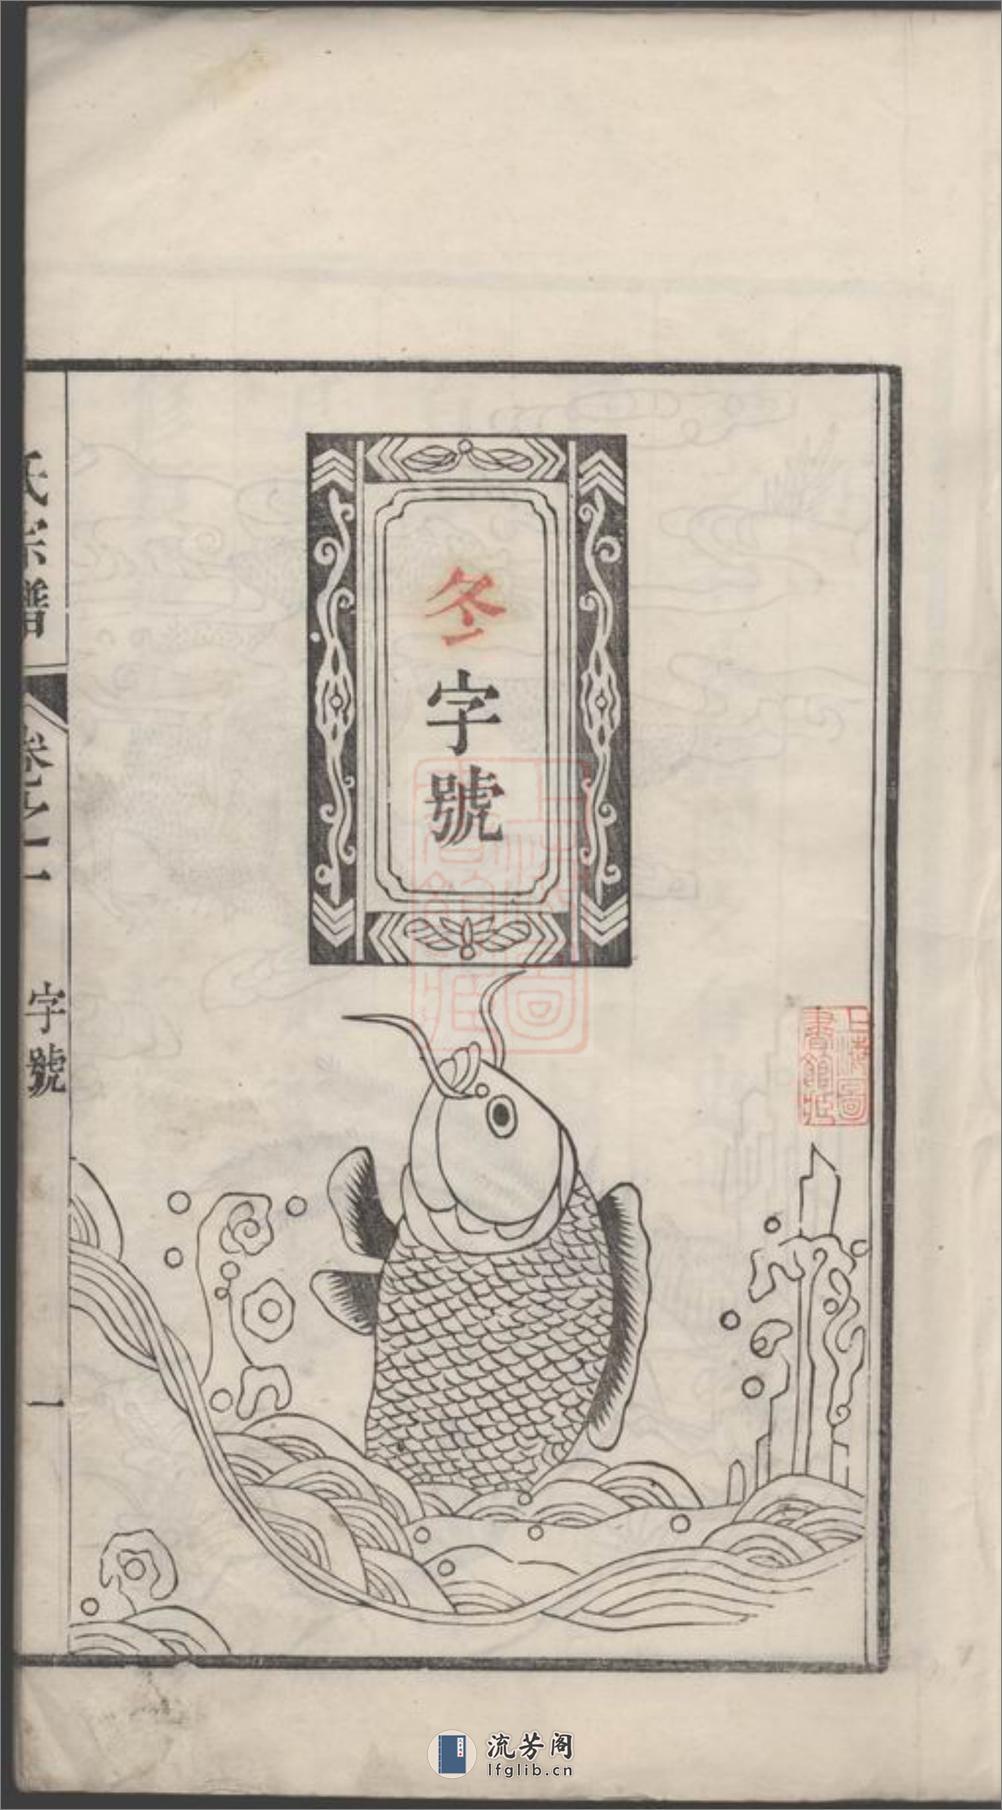 冬字號
氏宗譜
卷之一
字號
一
上海圖書館藏
上海圖書館藏
流芳阁
lfglib.cn